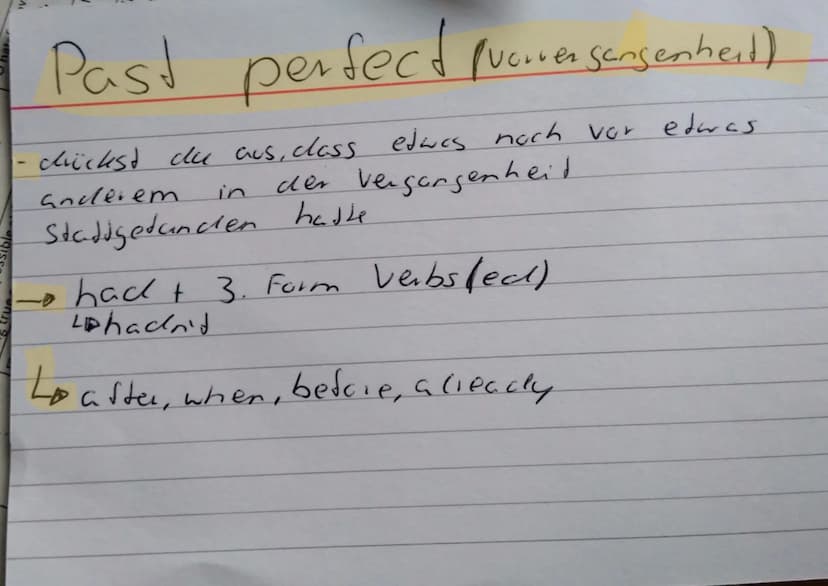 Past perfect (Vorvergangenheit)
- drückst du aus, dass etwas noch vor etwas
anderem in der Vergangenheit
Stattgefunden hatte
→ had + 3. Form Verbs (ed)
↳ hadn't
↳ after, when, before, already